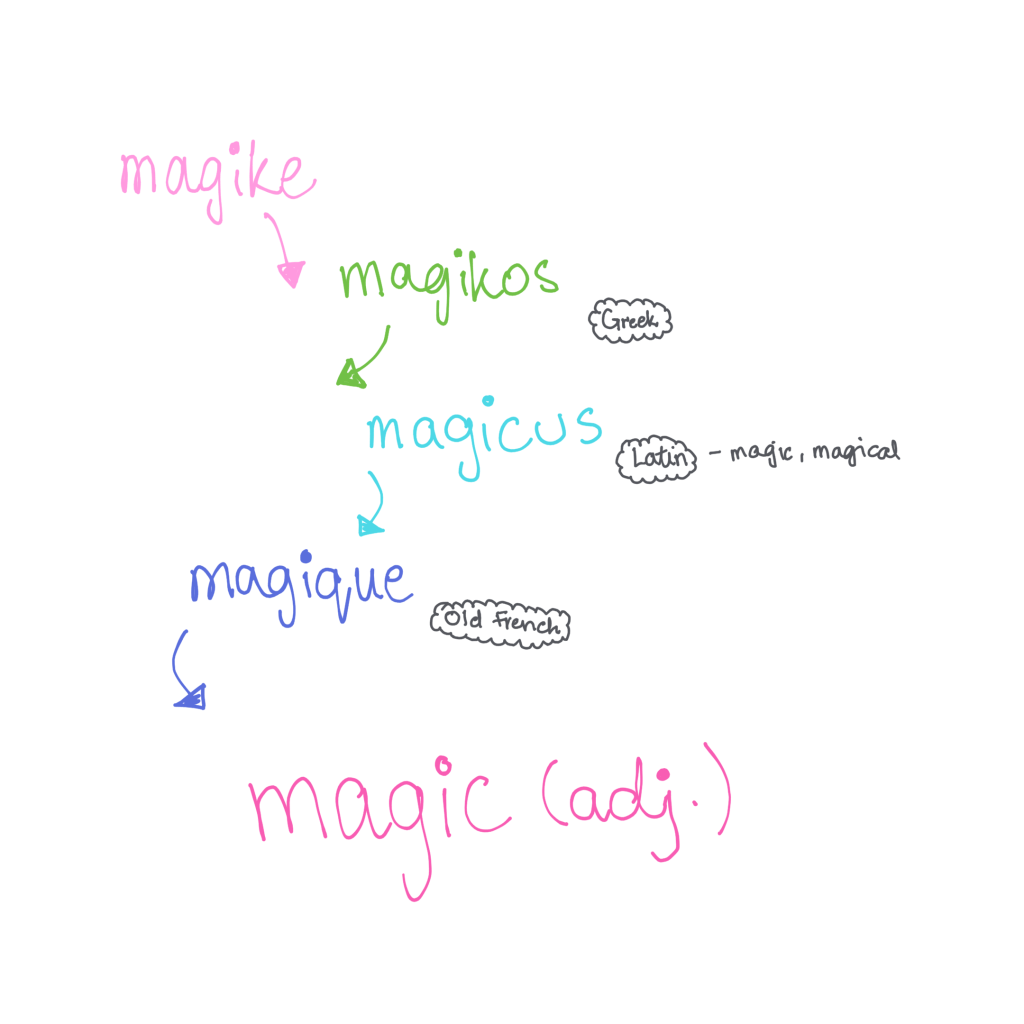 magike
magikos
Greek
magicus
Latin - magic, magical
magique
Old French
magic (adj.)